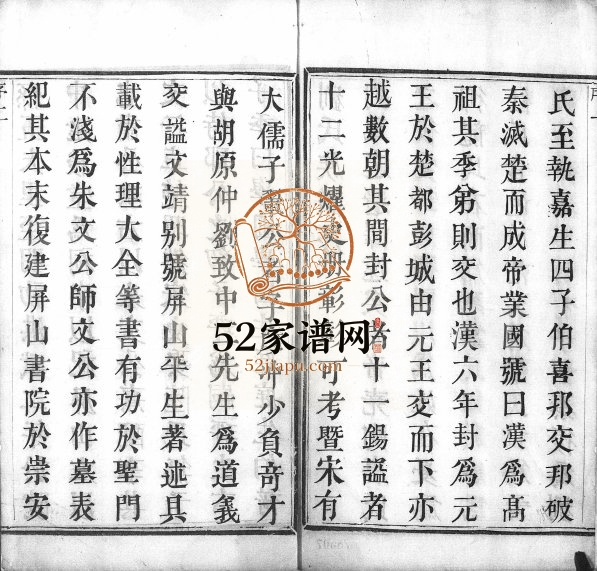 氏至執嘉生四子伯喜邦交邦破
秦滅楚而成帝業國號曰漢爲髙
祖其季弟則交也漢六年封爲元
王於楚都彭城由元王交而下亦
越數朝其間封公者十錫謚者
十二光耀史册彰可考暨宋有
大儒子翬公字冲少負竒才
與胡原仲劉致中先生爲道義
交謚文靖别號屏山平生著述具
載於性理大全等書有功於聖門
不淺爲朱文公師文公亦作墓表
紀其本末復建屏山書院於崇安
序二
52家谱网
52jiapu.com